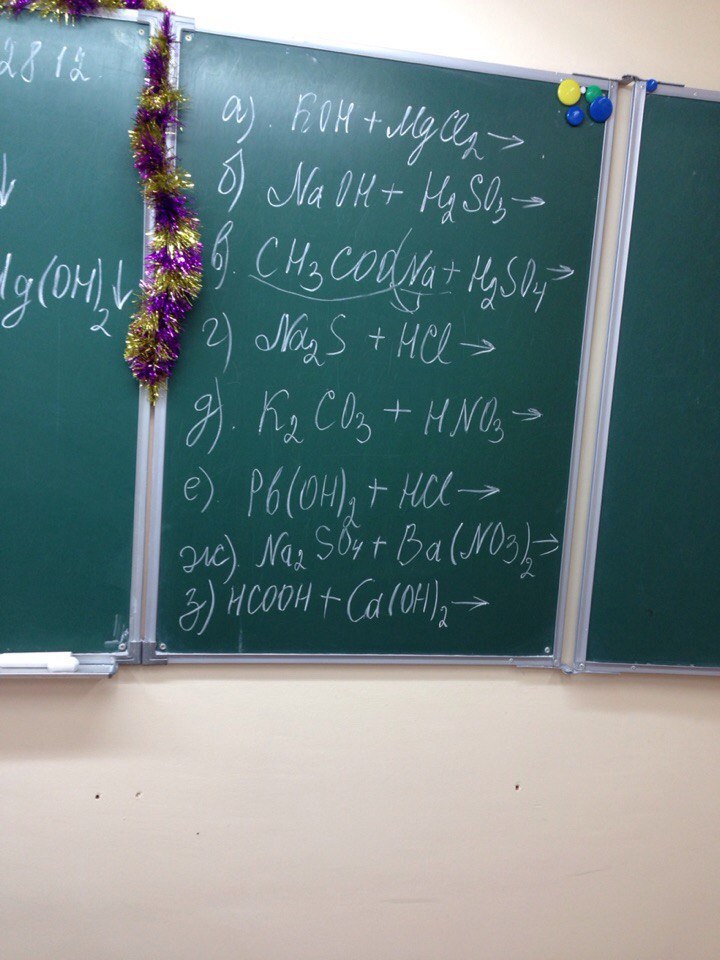 2812
↓
Mg(OH)₂↓
а). KOH + MgCl₂ →
б) NaOH + H₂SO₃ →
в). CH₃COONa + H₂SO₄ →
г) Na₂S + HCl →
д). K₂CO₃ + HNO₃ →
е) Pb(OH)₂ + HCl →
ж). Na₂SO₄ + Ba(NO₃)₂ →
з) HCOOH + Ca(OH)₂ →